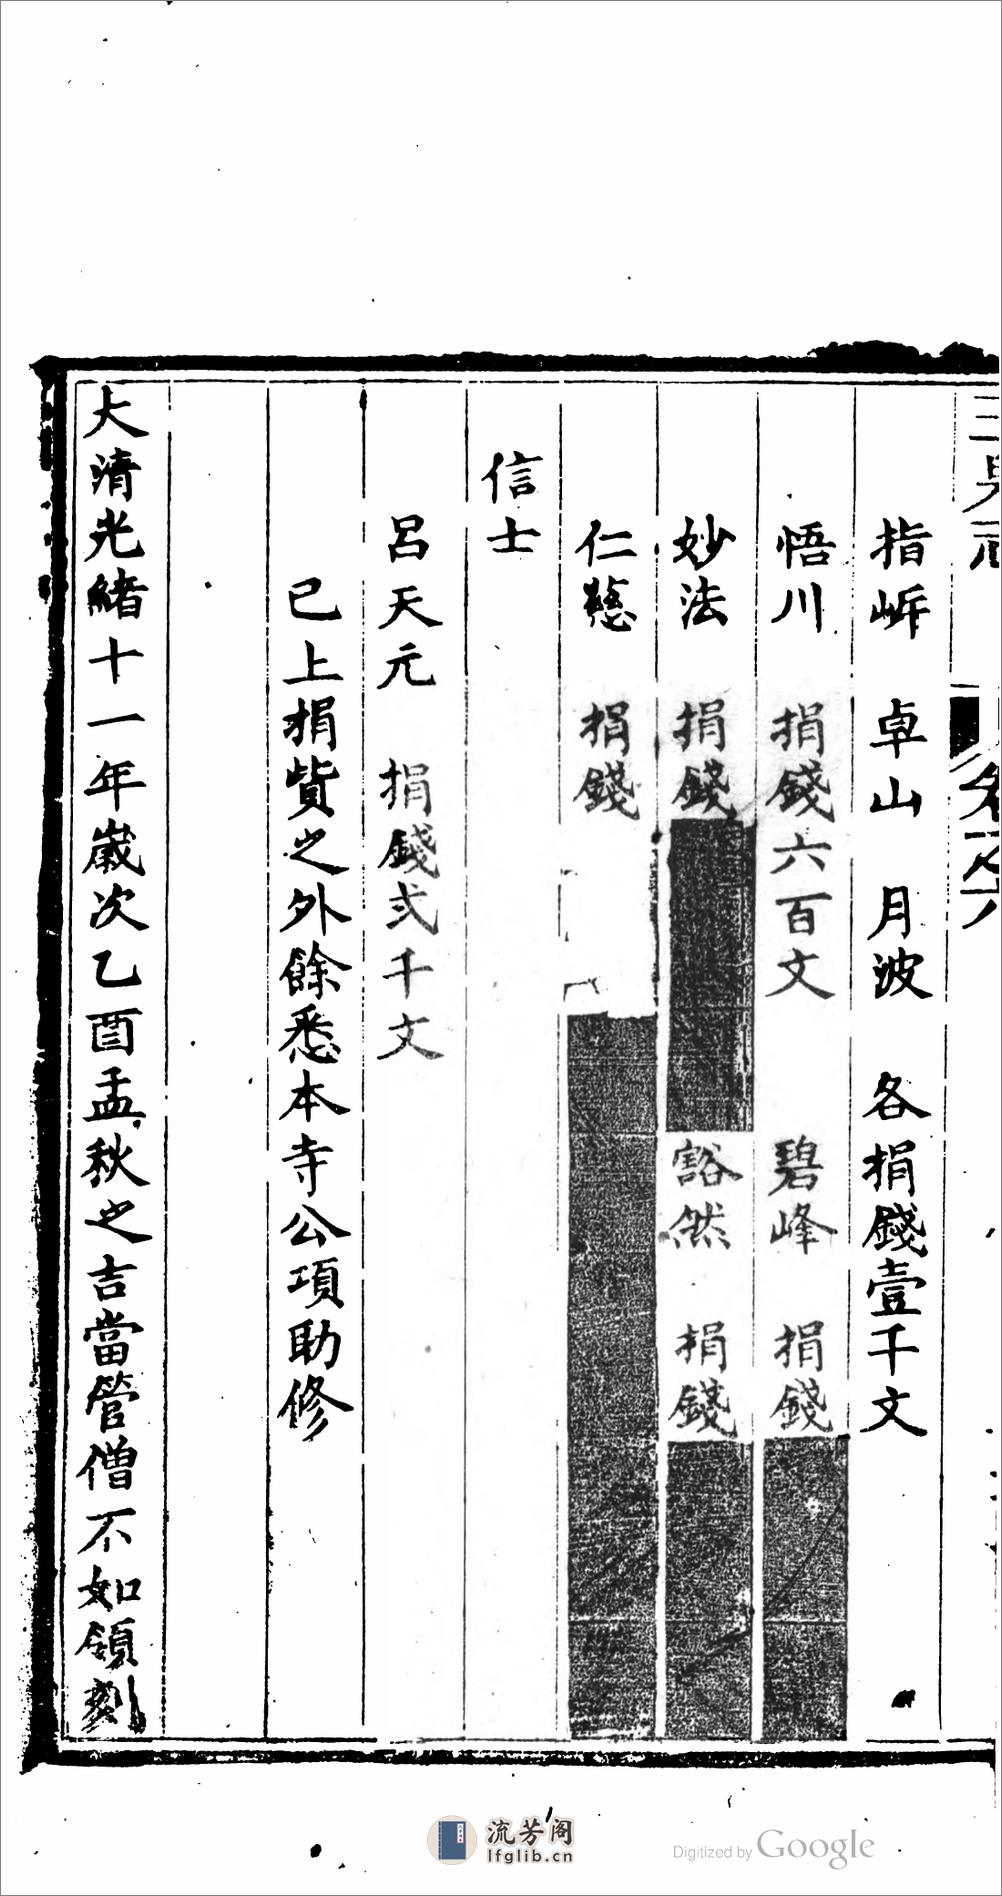 指㟁　卓山　月波　各捐錢壹千文
悟川　捐錢六百文　碧峰　捐錢
妙法　捐錢　豁然　捐錢
仁慈　捐錢
信士
呂天元　捐錢弍千文
已上捐貲之外餘悉本寺公項助修
大清光緒十一年歲次乙酉孟秋之吉當管僧不如領刻
流芳阁
lfglib.cn
Digitized by Google